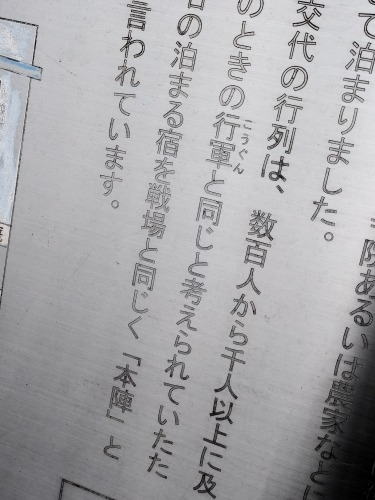 陣あるいは農家など
て泊まりました。
交代の行列は、数百人から千人以上に及
のときの行軍と同じと考えられていたた
こうぐん
の泊まる宿を戦場と同じく「本陣」と
言われています。